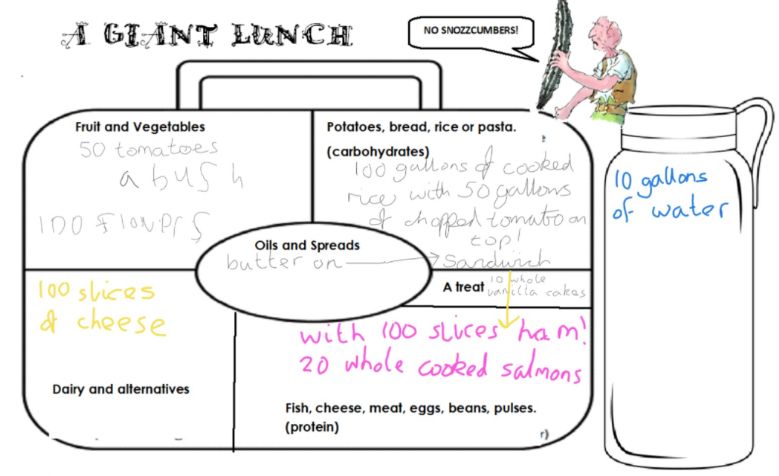 A GIANT LUNCH
NO SNOZZCUMBERS!
Fruit and Vegetables
50 tomatoes
a bush
100 flowers
Potatoes, bread, rice or pasta.
(carbohydrates)
100 gallons of cooked
rice with 50 gallons
of chopped tomato on
top!
Oils and Spreads
butter on
sandwich
A treat
10 whole
vanilla cakes
10 gallons
of water
100 slices
of cheese
Dairy and alternatives
with 100 slices ham!
20 whole cooked salmons
Fish, cheese, meat, eggs, beans, pulses.
(protein)
r)